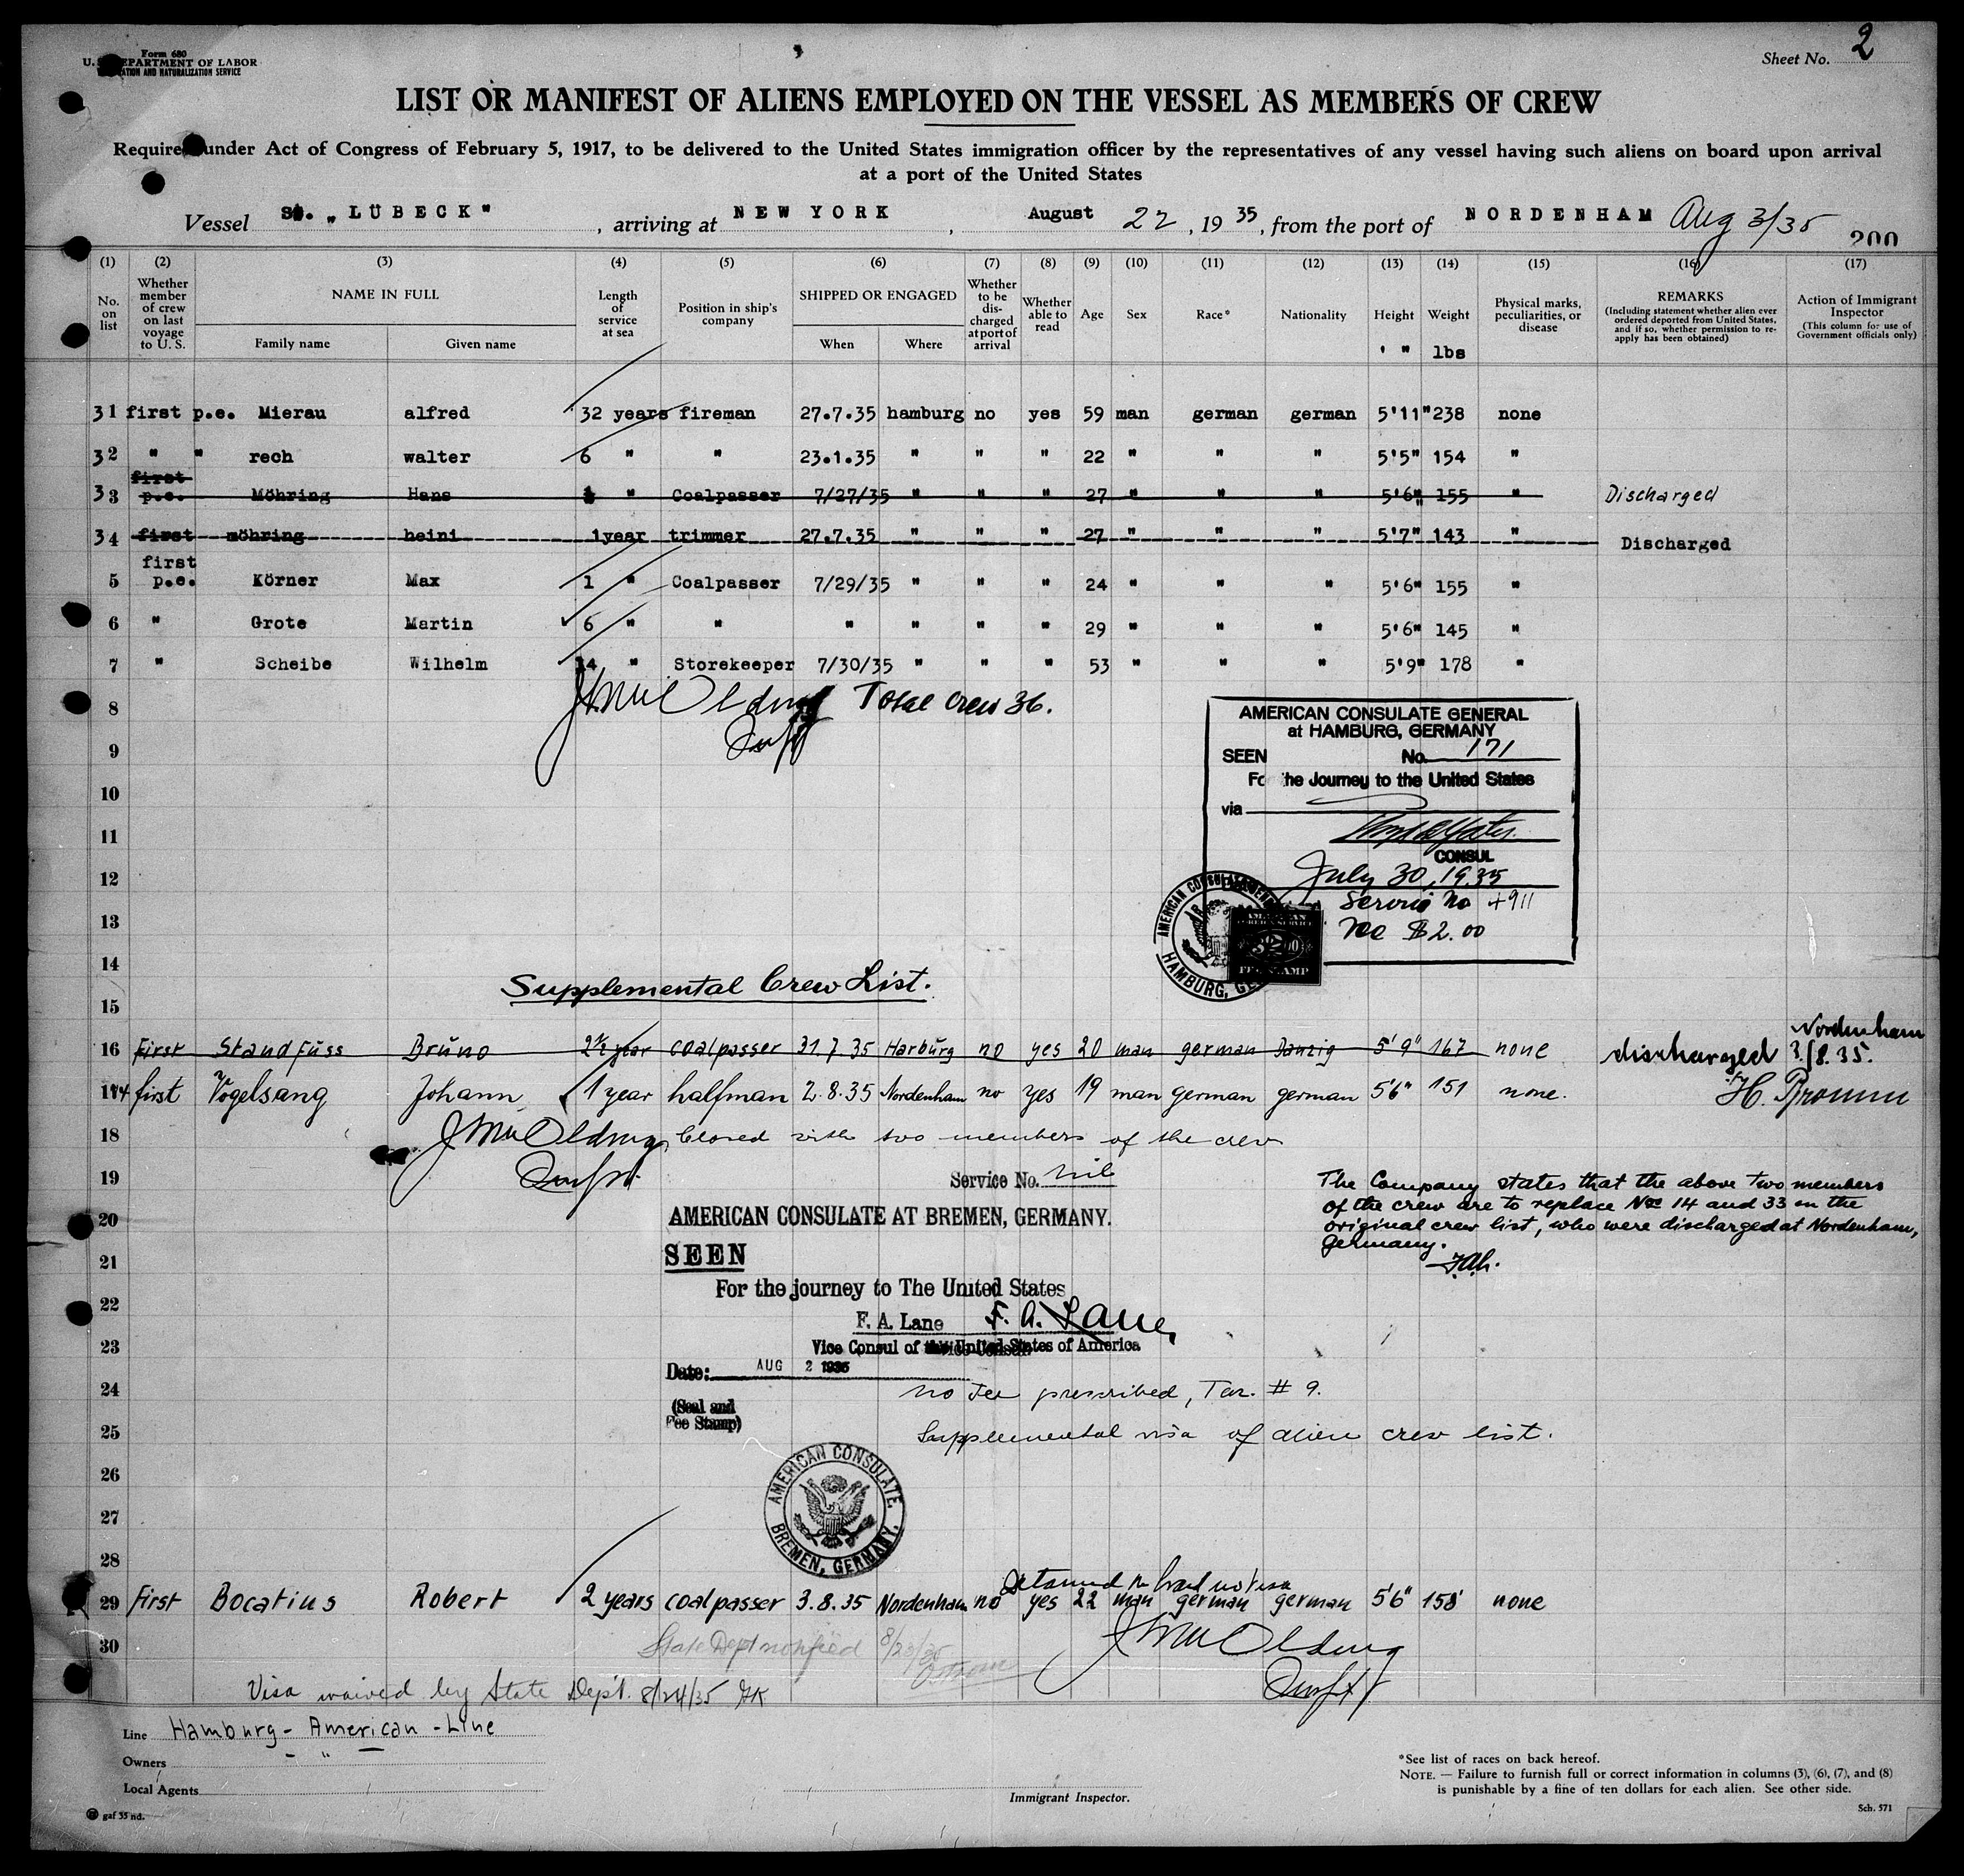 Form 680
U. S. DEPARTMENT OF LABOR
IMMIGRATION AND NATURALIZATION SERVICE
Sheet No. 2
LIST OR MANIFEST OF ALIENS EMPLOYED ON THE VESSEL AS MEMBERS OF CREW
Required under Act of Congress of February 5, 1917, to be delivered to the United States immigration officer by the representatives of any vessel having such aliens on board upon arrival
at a port of the United States
Vessel St. „LÜBECK" , arriving at NEW YORK , August 22 , 19 35 , from the port of NORDENHAM Aug 3/35
200
(1) (2) (3) (4) (5) (6) (7) (8) (9) (10) (11) (12) (13) (14) (15) (16) (17)
No. on list
Whether member of crew on last voyage to U. S.
NAME IN FULL
Family name Given name
Length of service at sea
Position in ship's company
SHIPPED OR ENGAGED
When Where
Whether to be discharged at port of arrival
Whether able to read
Age Sex Race* Nationality Height Weight
' " lbs
Physical marks, peculiarities, or disease
REMARKS
(Including statement whether alien ever ordered deported from United States, and if so, whether permission to re-apply has been obtained)
Action of Immigrant Inspector
(This column for use of Government officials only)
31 first p.e. Mierau alfred 32 years fireman 27.7.35 hamburg no yes 59 man german german 5'11" 238 none
32 " " rech walter 6 " " 23.1.35 " " " 22 " " " 5'5" 154 "
33 first p.e. Möhring Hans " Coalpasser 7/27/35 " " " 27 " " " 5'6" 155 " Discharged
34 first möhring heini 1year trimmer 27.7.35 " " " 27 " " " 5'7" 143 " Discharged
5 first p.e. Körner Max 1 " Coalpasser 7/29/35 " " " 24 " " " 5'6" 155 "
6 " Grote Martin 6 " " " " " " 29 " " " 5'6" 145 "
7 " Scheibe Wilhelm 14 " Storekeeper 7/30/35 " " " 53 " " " 5'9" 178 "
8 Total crew 36.
9
10
11
12
13
14
15
AMERICAN CONSULATE GENERAL
at HAMBURG, GERMANY
SEEN No. 171
For the Journey to the United States
via
CONSUL
July 30, 1935
Service No 4911
Fee $2.00
AMERICAN CONSULATE GENERAL
HAMBURG, GERMANY
AMERICAN
FOREIGN SERVICE
$2.00
FEE STAMP
Supplemental Crew List.
16 First Standfuss Bruno 2½ year coalpasser 31.7.35 Harburg no yes 20 man german Danzig 5'9" 167 none discharged Nordenham 3/8.35.
17 first Vogelsang Johann 1 year halfman 2.8.35 Nordenham no yes 19 man german german 5'6" 151 none.
18 Closed with two members of the crew
19 Service No. nil
The Company states that the above two members
of the crew are to replace Nos 14 and 33 on the
original crew list, who were discharged at Nordenham,
Germany.
F.A.L.
20 AMERICAN CONSULATE AT BREMEN, GERMANY.
21 SEEN
22 For the journey to The United States
F. A. Lane F. A. Lane
23 Vice Consul of the United States of America
Date: AUG 2 1935
24 No fee prescribed, Tar. # 9.
(Seal and
Fee Stamp)
25 Supplemental visa of alien crew list.
26
27
AMERICAN CONSULATE,
BREMEN, GERMANY.
28
29 First Bocatius Robert 2 years coalpasser 3.8.35 Nordenham no yes 22 man german german 5'6" 158 none
Detained on board no visa
30 State Dept notified 8/23/35
Visa waived by State Dept. 8/24/35
Line Hamburg-American-Line
Owners - " -
Local Agents
Immigrant Inspector.
*See list of races on back hereof.
NOTE. — Failure to furnish full or correct information in columns (3), (6), (7), and (8)
is punishable by a fine of ten dollars for each alien. See other side.
gaf 35 nd.
Sch. 571